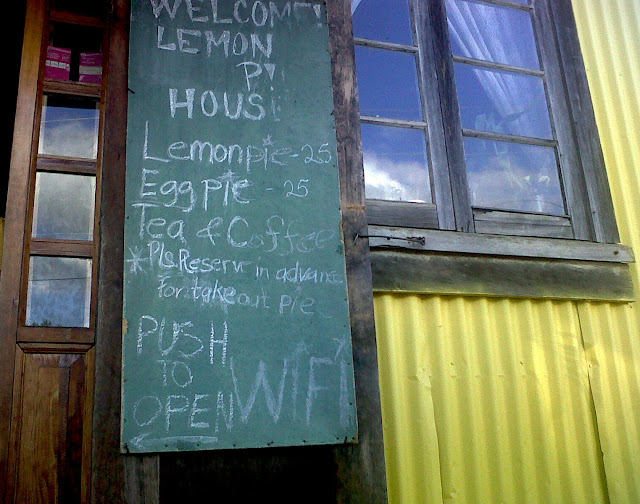 WELCOME!
LEMON
HOUS
Lemon pie - 25
Egg pie - 25
Tea & Coffee
*Pls. Reserve in advance
for take out pie
PUSH
TO
OPEN
WIFI